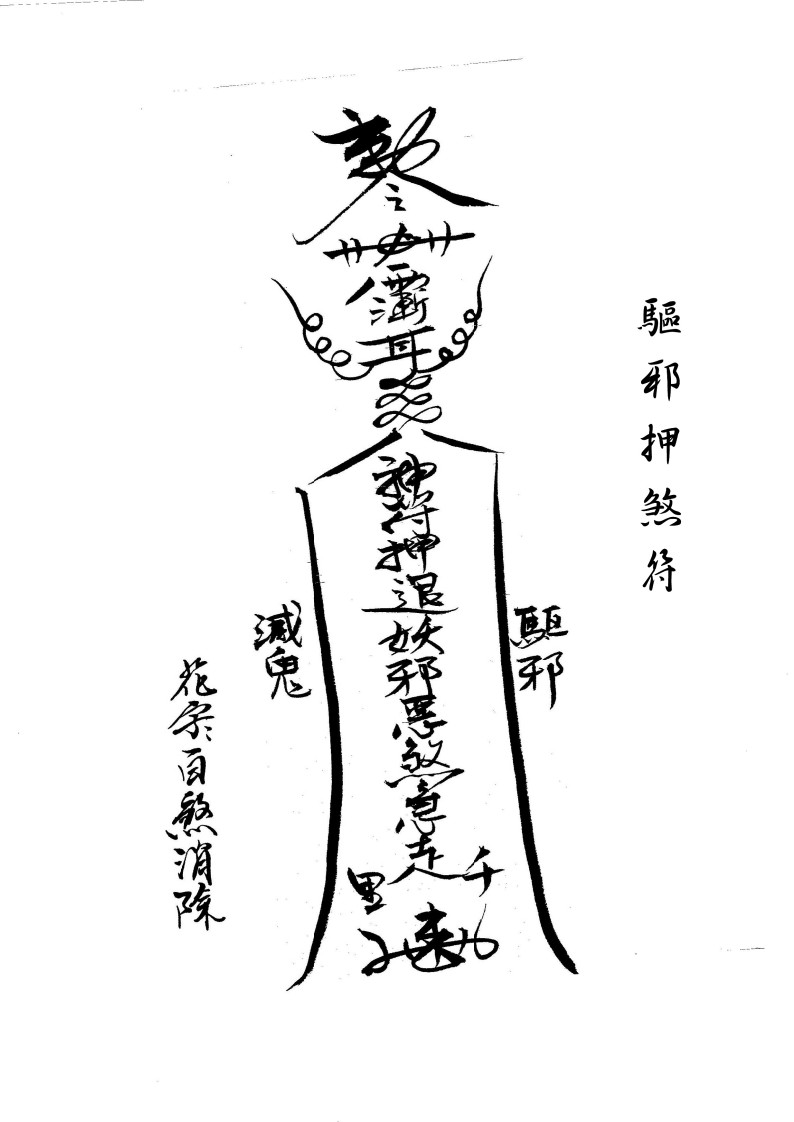 驅邪押煞符
敕令
神符押退妖邪惡煞急走千里
驅邪
滅鬼
百煞消除